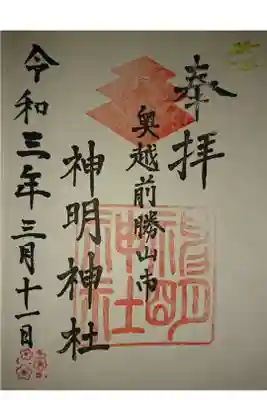 奉拝
奥越前勝山市
神明神社
令和三年三月十一日